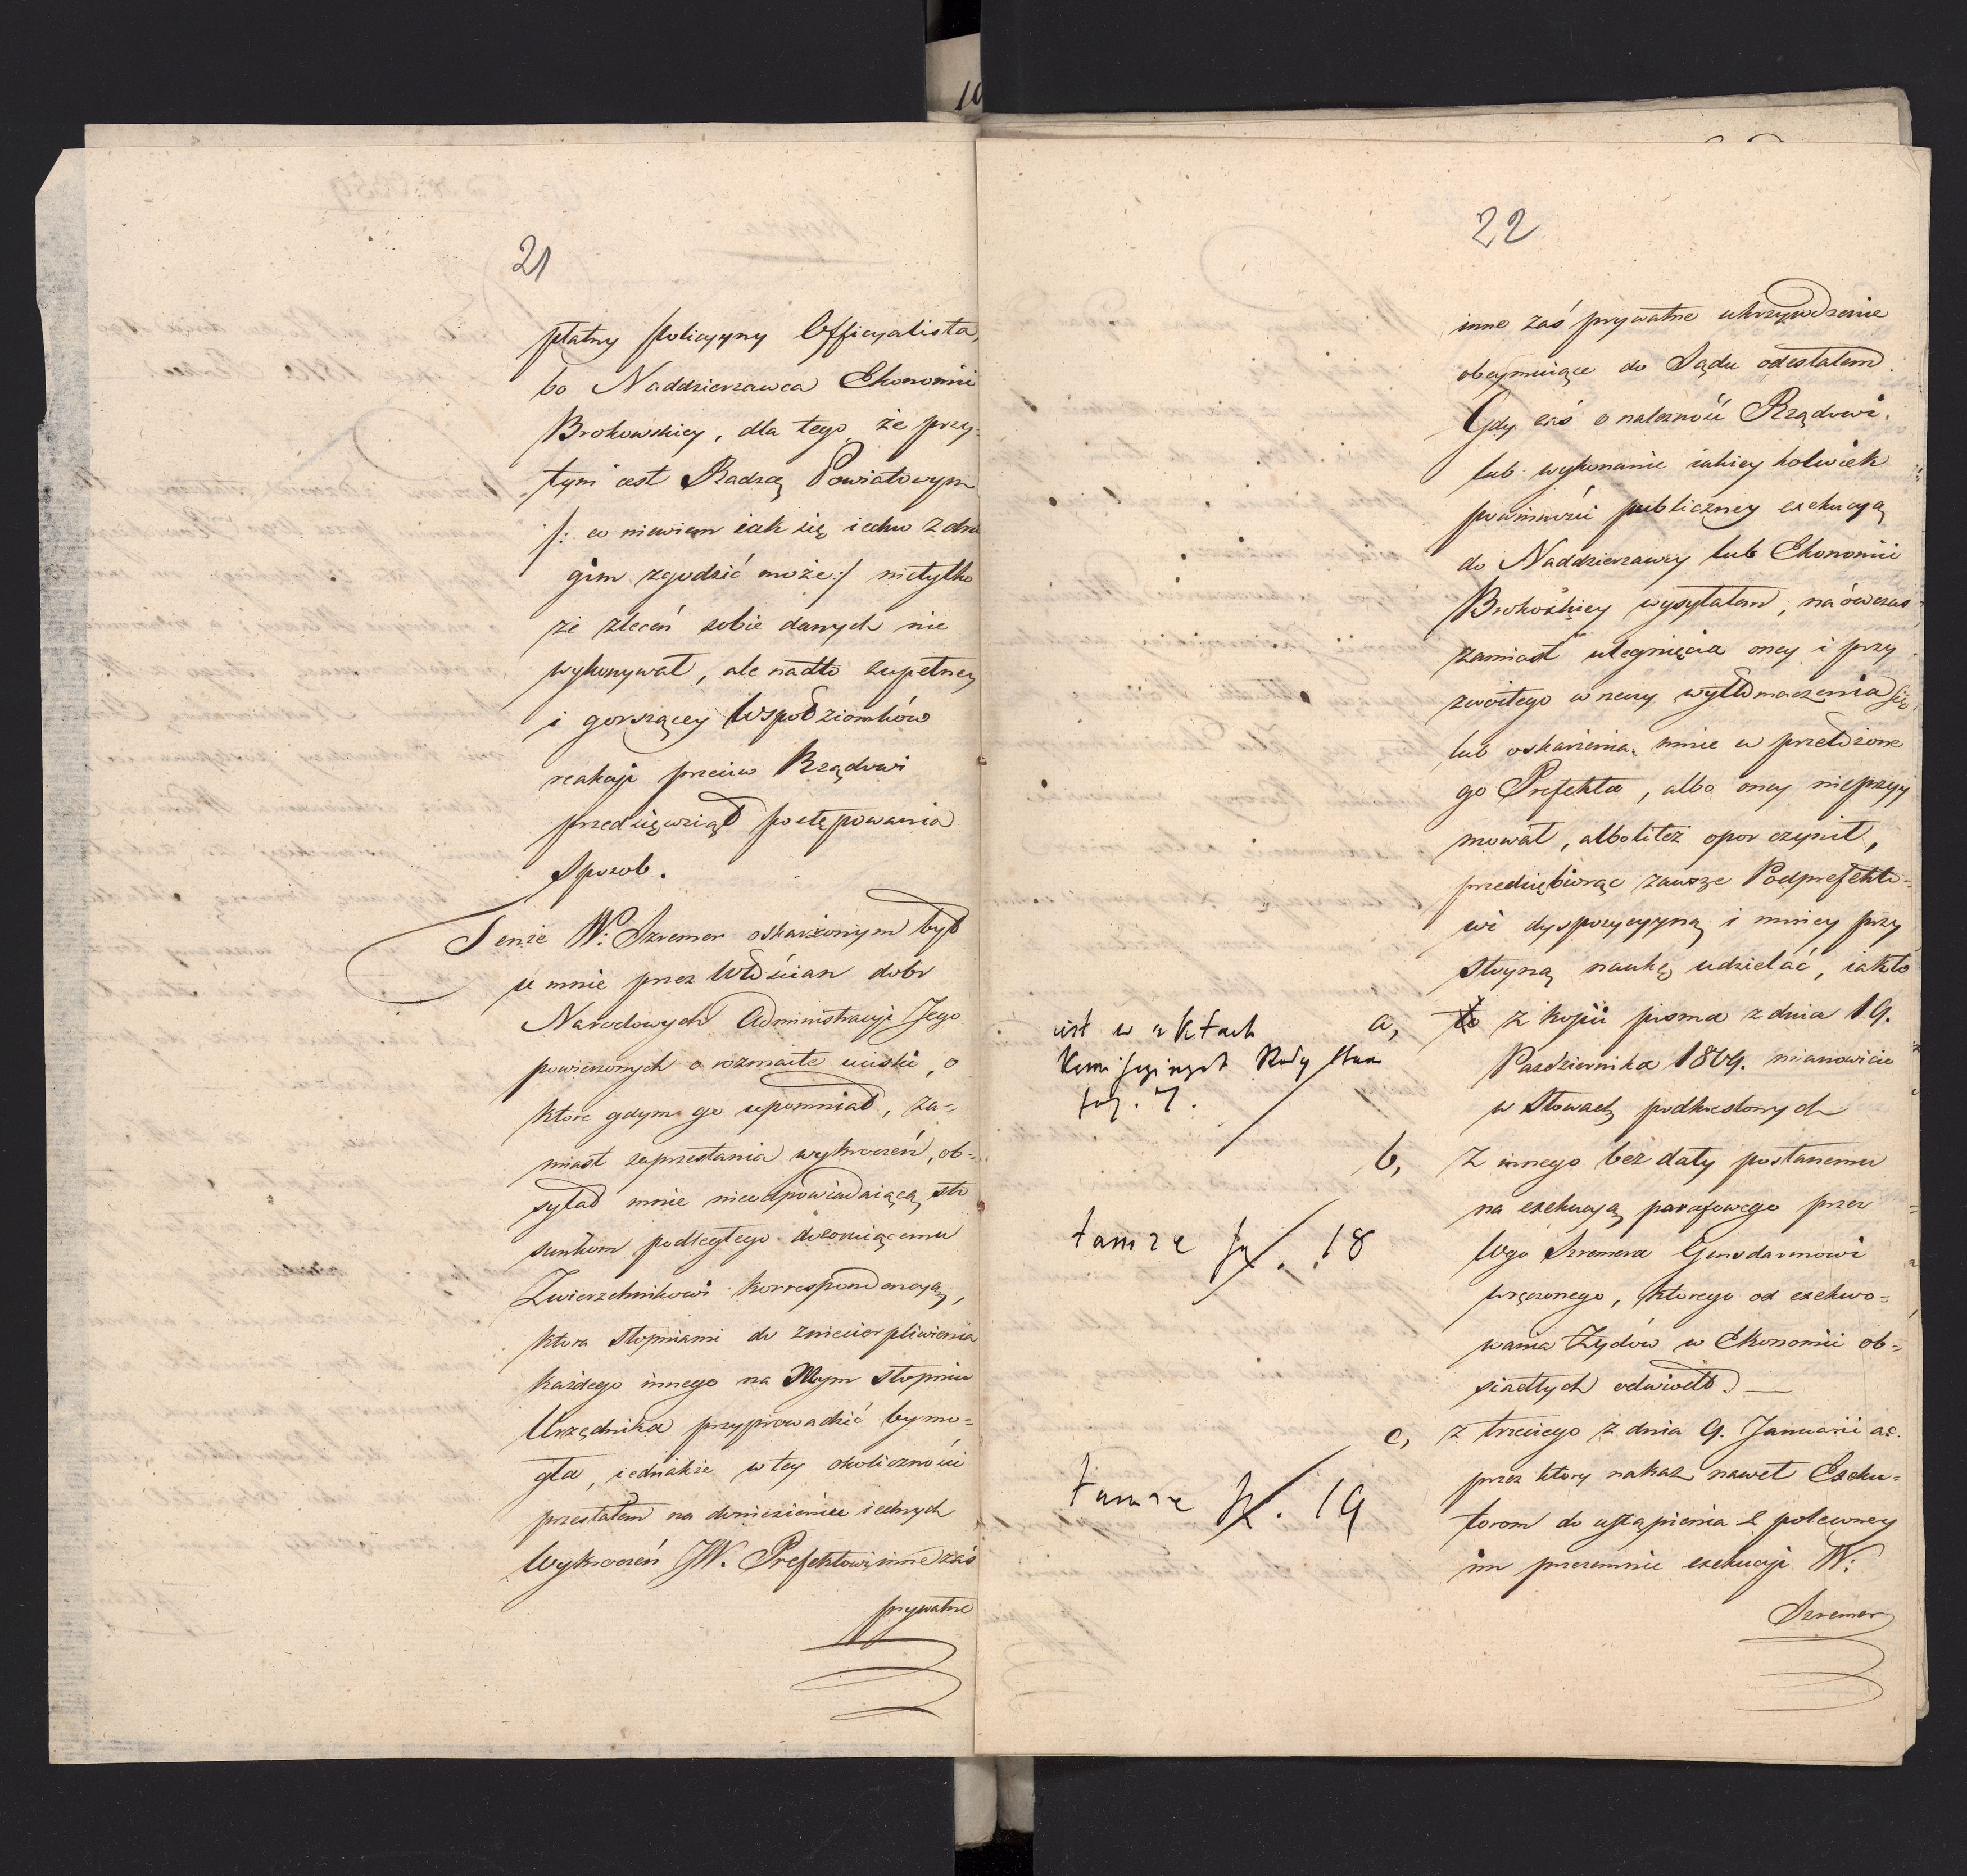 21
płatny Policyyny Officyalista,
bo Naddzierzawca Ekonomii
Brokowskiey, dla tego, że przy-
tym iest Radzcą Powiatowym
/: co niewiem iak się iedno z dru
gim zgodzić może :/ nietylko
że zleceń sobie danych nie
wykonywał, ale nadto zupełney
i gorszącey Współziomków
reakcyi przeciw Rządowi
przedsięwziął postępowania
Sposob.
Tenże W: Szremer oskarżonym był
u mnie przez Włościan dobr
Narodowych Administracyi Jego
powierzonych o rozmaite uciski, o
które gdym go upomniał, za=
miast zaprzestania wykroczeń, ob=
syłał mnie nieodpowiadaiącą sto
sunkom podległego
Zwierzchnikowi korrespondencyą,
ktora stopniami do zniecierpliwienia
każdego innego na Mym stopniu
Urzędnika przyprowadzić by mo=
gła, iednakże w tey okoliczności
przestałem na doniesieniu iednych
Wykroczeń JW. Prefektowi, inne zaś
prywatne
22
inne zaś prywatne ukrzywdzenie
obeymuiące do Sądu odesłałem.
Gdy zaś o należność Rządowi
lub wykonanie iakiey kolwiek
powinności publiczney exekucyą
do Naddzierzawcy lub Ekonomii
Brokoskiey wysyłałem, naówczas
zamiast ulegnięcia oney i przy
zwoitego w rzeczy wytłomaczenia się
lub oskarżenia mnie u przełożone
go Prefekta, albo oney nieprzyy
mował, albo liteż opor czynił,
przedsiębiorąc zawsze Podprefekto=
wi dyspozycyyną i mniey przy
stoyną naukę udzielać, iakoto
a, z kopii pisma z dnia 19.
Pazdziernika 1809. mianowicie
w słowach podkreslonych
b, Z innego bez daty postanemu
na exekucyą parafowego przez
Wgo Szremera Gensdarmowi
wręczonego, ktorego od exekwo=
wania Żydów w Ekonomii ob=
siadłych odwiodł. —
c, z trzeciego z dnia 9. Januarii ac.
przez ktory nakaz nawet Exeku=
torom do ustąpienia z poleconey
im przezemnie exekucyi W:
Szremer
iest w aktach
Komisyinych Rady Stanu
fog. 7.
tamże fg. 18
tamże fg. 19